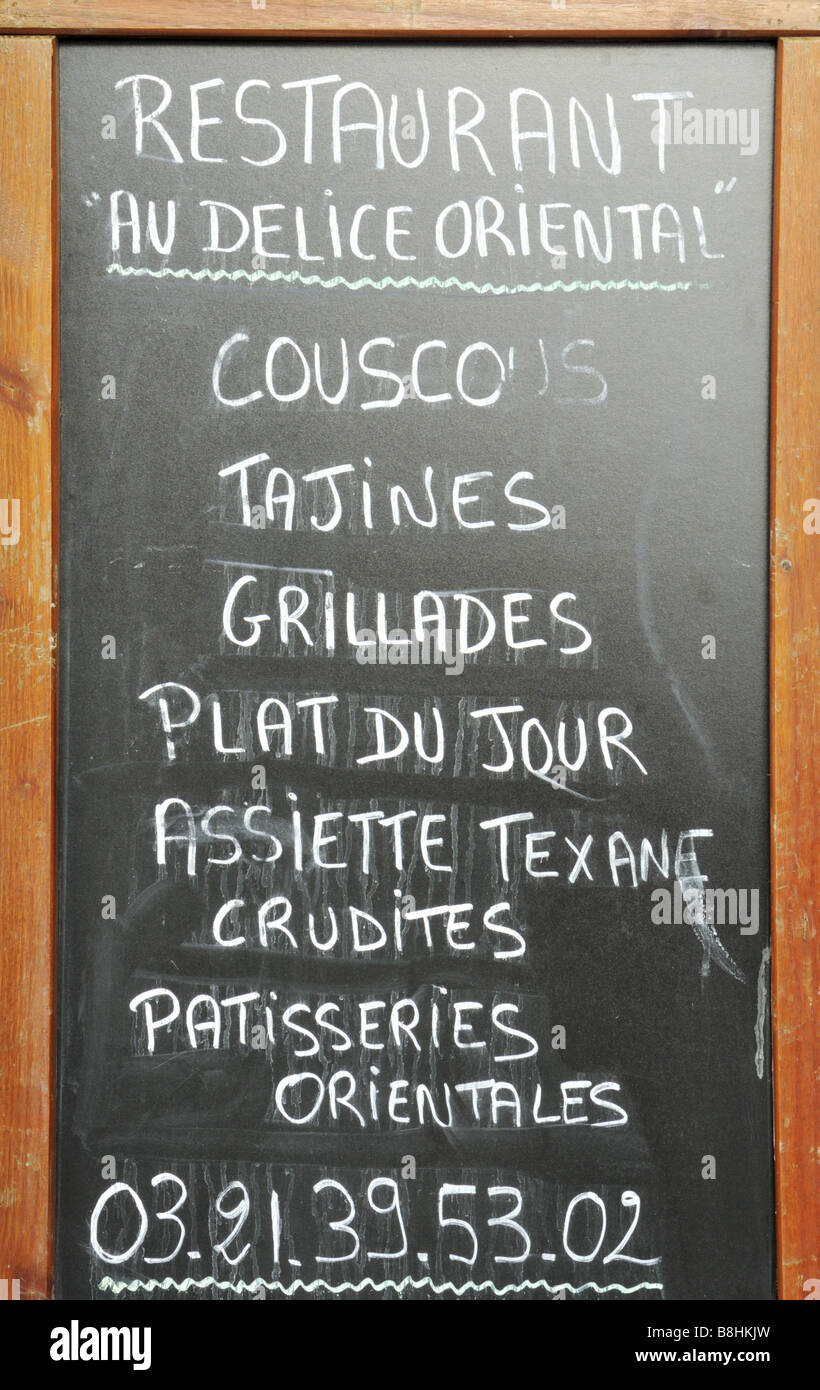 RESTAURANT
"AU DELICE ORIENTAL"
COUSCOUS
TAJINES
GRILLADES
PLAT DU JOUR
ASSIETTE TEXANE
CRUDITES
PATISSERIES
ORIENTALES
03.21.39.53.02
alamy
Image ID: B8HKJW
www.alamy.com